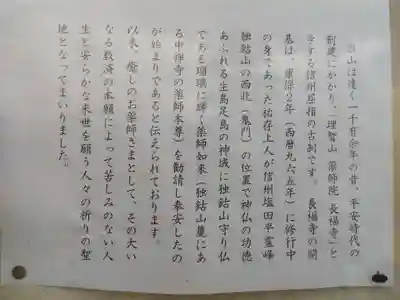 当山は遠く一千有余年の昔、平安時代の
創建にかかり、理智山 薬師院 長福寺と
号する信州屈指の古刹です。 長福寺の開
基は、康保2年(西暦九六五年)に修行中
の身であった祐存上人が信州塩田平霊峰
独鈷山の西北(鬼門)の位置で神仏の功徳
あふれる生島足島の神域に独鈷山守り仏
である瑠璃に輝く薬師如来(独鈷山麓にあ
る中禅寺の薬師本尊)を勧請し奉安したの
が始まりであると伝えられております。
以来、癒しのお薬師さまとして、その大い
なる救済の本願によって苦しみのない人
生と安らかな来世を願う人々の祈りの聖
地となってまいりました。